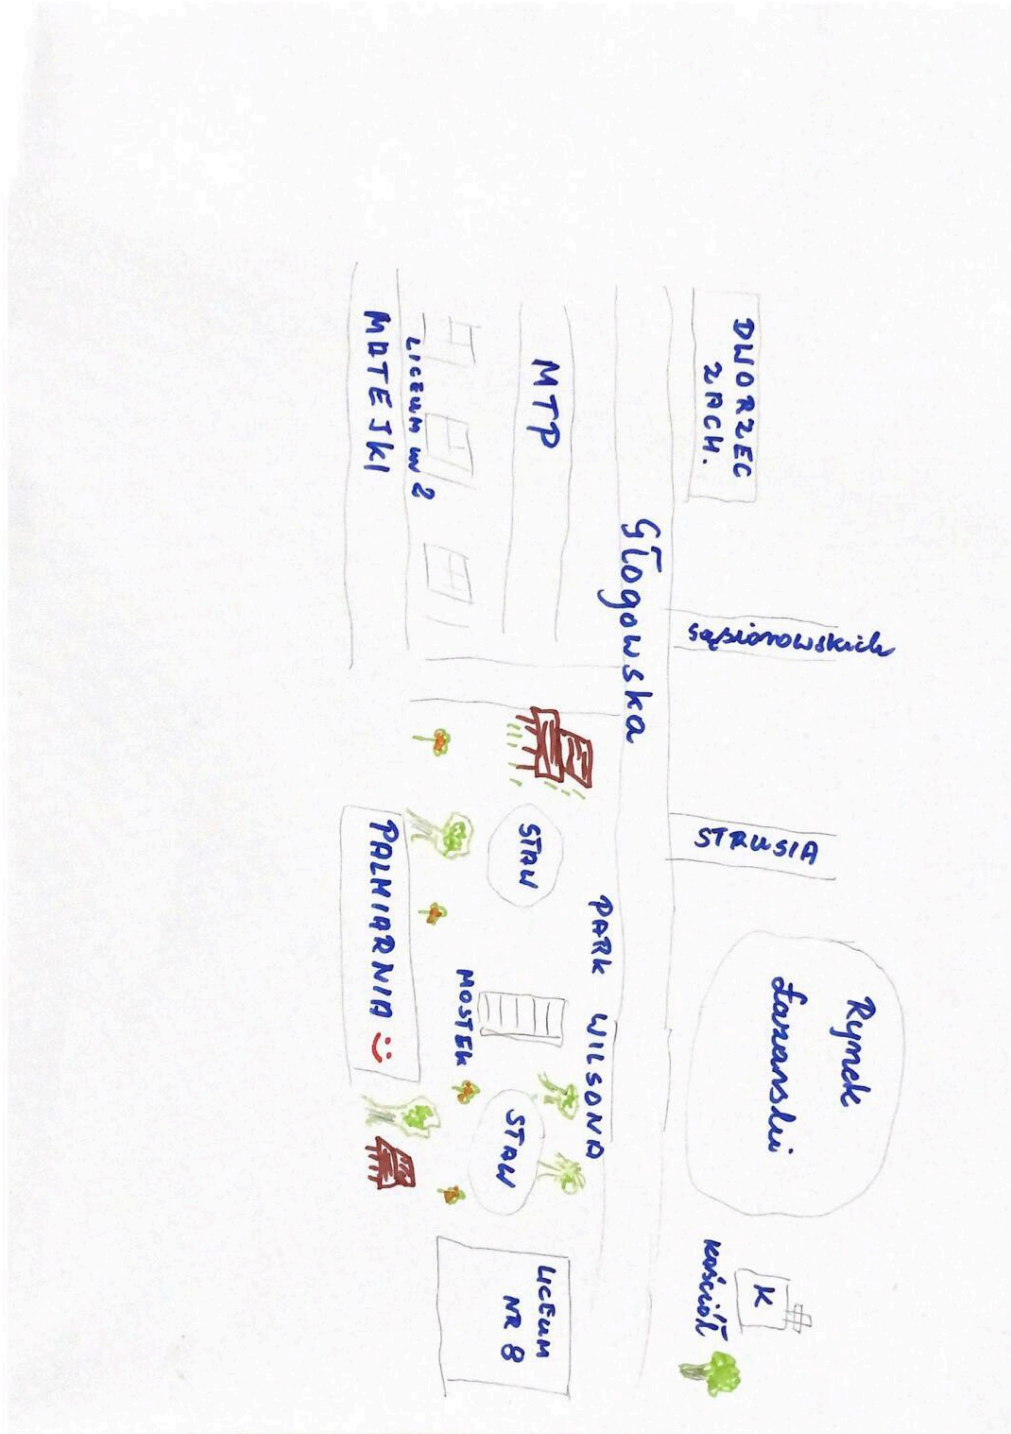 DWORZEC
ZACH.
Sąsionowskich
STRUSIA
Rynek
Łazarski
K
kościół
Głogowska
MTP
PARK WILSONA
STAW
MOSTEK
STAW
LICEUM
NR 8
LICEUM nr 2
MATEJKI
PALMIARNIA